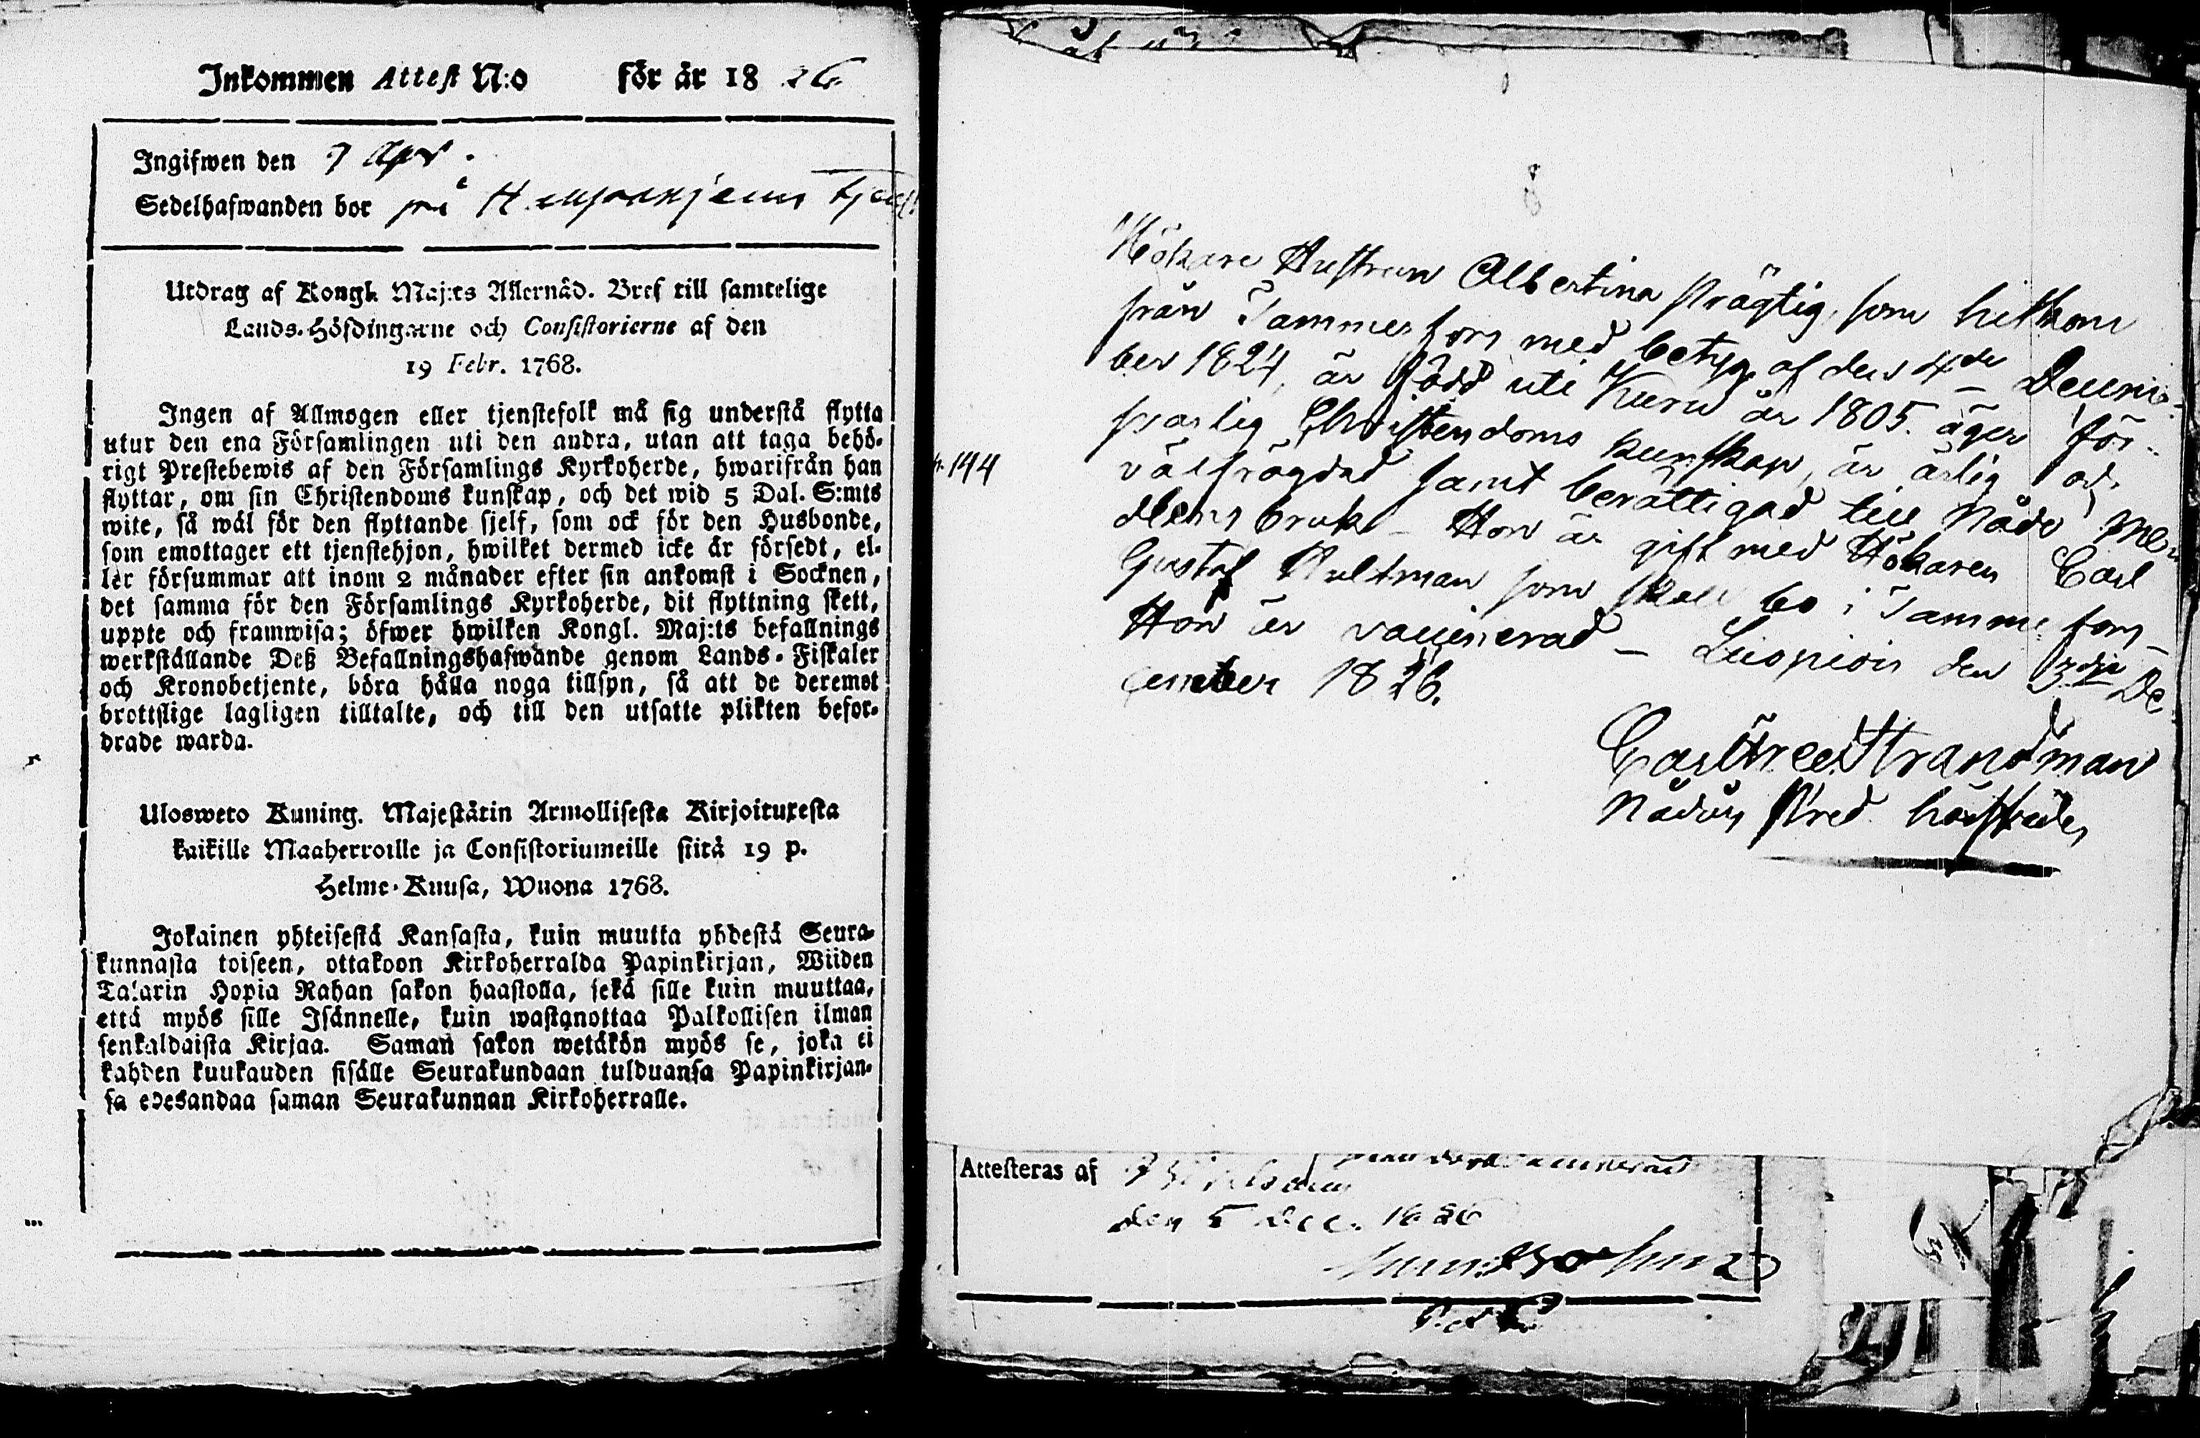 Inkommen Attest N:o för år 1826.
Ingifwen den 7 Apr.
Sedelhafwanden bor på
Utdrag af Kongl. Maj:ts Allernåd. Bref till samtelige
Lands-Höfdingarne och Consistorierne af den
19 Febr. 1768.
Ingen af Allmogen eller tjenstefolk må sig understå flytta
utur den ena Församlingen uti den andra, utan att taga behö-
rigt Prestebewis af den Församlings Kyrkoherde, hwarifrån han
flyttar, om sin Christendoms kunskap, och det wid 5 Dal. S:mts
wite, så wäl för den flyttande sjelf, som ock för den Husbonde,
som emottager ett tjenstehjon, hwilket dermed icke är försedt, el-
ler försummar att inom 2 månader efter sin ankomst i Socknen,
det samma för den Församlings Kyrkoherde, dit flyttning skett,
uppte och framwisa; öfwer hwilken Kongl. Maj:ts befallnings
werkställande Deß Befallningshafwande genom Lands-Fiskaler
och Kronobetjente, böra hålla noga tillsyn, så att de deremot
brottslige lagligen tilltalte, och till den utsatte plikten befor-
drade warda.
Ulosweto Kuning. Majestätin Armollisesta Kirjoituxesta
kaikille Maaherroille ja Consistoriumeille siitä 19 p.
Helme-Kuusa, Wuona 1768.
Jokainen yhteisestä Kansasta, kuin muutta yhdestä Seura-
kunnasta toiseen, ottakoon Kirkoherralda Papinkirjan, Wiiden
Talarin Hopia Rahan sakon haastolla, sekä sille kuin muuttaa,
että myös sille Isännelle, kuin wastanottaa Palkollisen ilman
senkaldaista Kirjaa. Saman sakon wetäkön myös se, joka ei
kahden kuukauden sisälle Seurakundaan tulduansa Papinkirjan-
sa edesandaa saman Seurakunnan Kirkoherralle.
Hökare Hustrun Albertina Prägtig, som hitkom
från Tammerfors med betyg af den 4de Decem-
ber 1824, är född uti Kuru år 1805. äger för-
svarlig Christendoms kunskap, är ärlig och
144
välfrägdad samt berättigad till Nåde Me-
dlens bruk - Hon är gift med Hökaren Carl
Gustaf Hultman som skall bo i Tammerfors -
Hon är vaccinerad - den 3dje De-
cember 1826.
Carl Strandman
Attesteras af
den 5 Dec. 1826